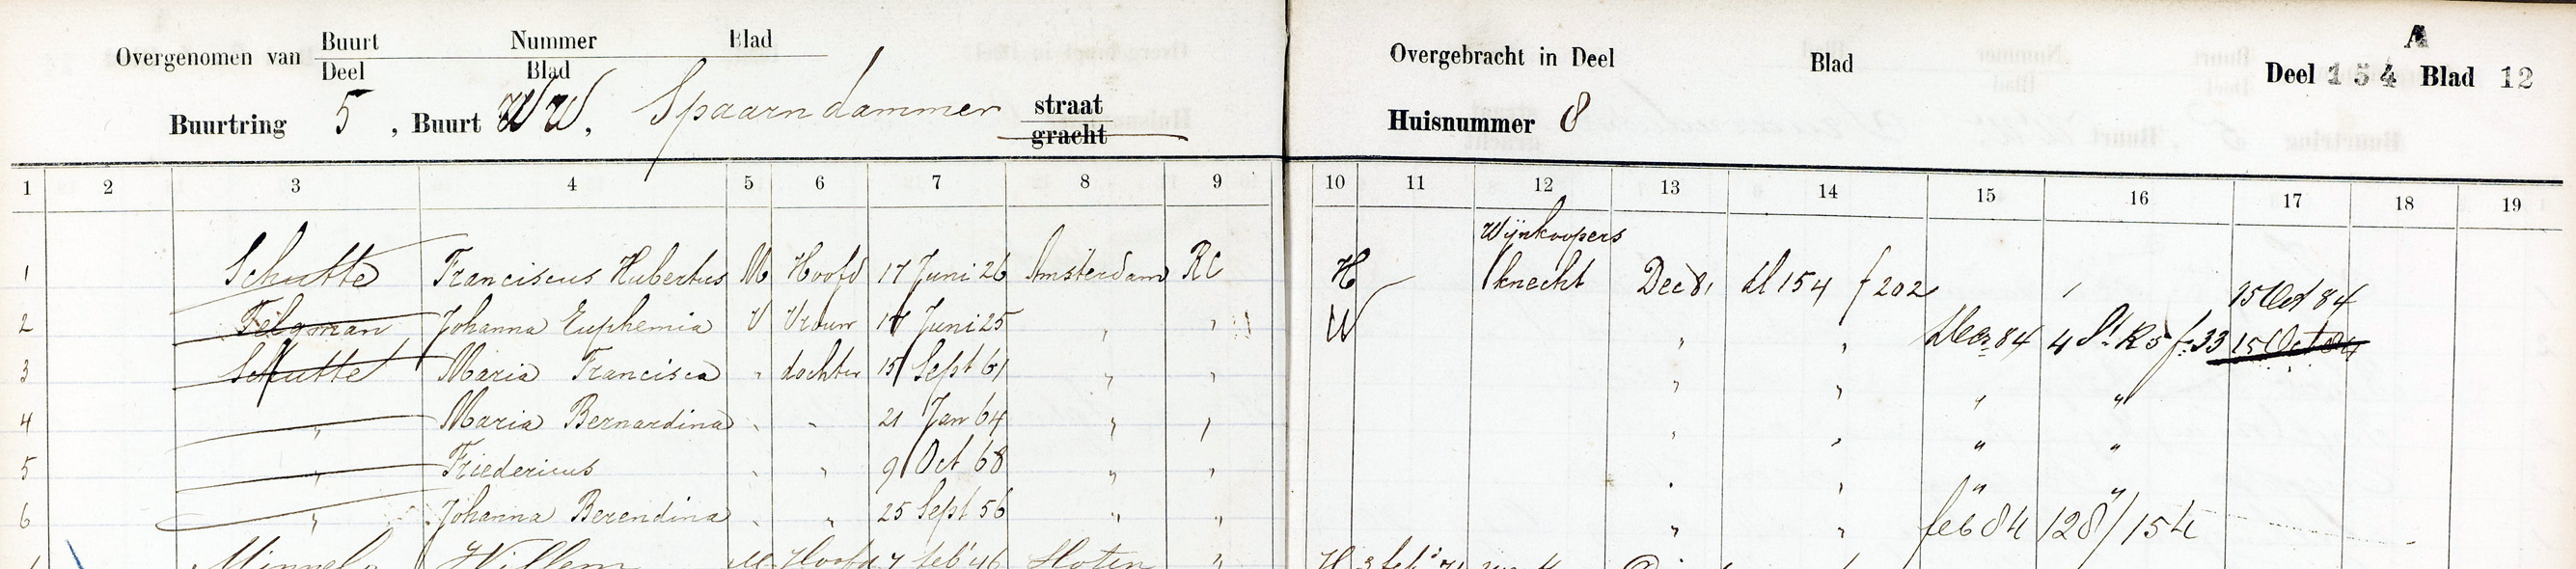 Overgenomen van Buurt Nummer Blad
Deel Blad
Buurtring 5, Buurt WW. Spaarndammer straat
gracht
Overgebracht in Deel Blad
Huisnummer 8
A
Deel 154 Blad 12
1 2 3 4 5 6 7 8 9 10 11 12 13 14 15 16 17 18 19
Wijnkoopers
1 Schutte Franciscus Hubertus M Hoofd 17 Juni 26 Amsterdam RC H knecht Dec 81 dl 154 f 202 15 Oct 84
2 Felgman Johanna Euphemia V Vrouw 17 Juni 25 " " W " " Dec 84 4 St. K5 f. 33 15 Oct 84
3 Schutte Maria Francisca " dochter 15 Sept 61 " " " " " "
4 " Maria Bernardina " " 21 Jan 64 " " " " " "
5 " Friedericus " " 9 Oct 68 " " " " " "
6 " Johanna Berendina " " 25 Sept 56 " " " " feb 84 128/154
Willem M Hoofd 7 feb 46 Sloten " H